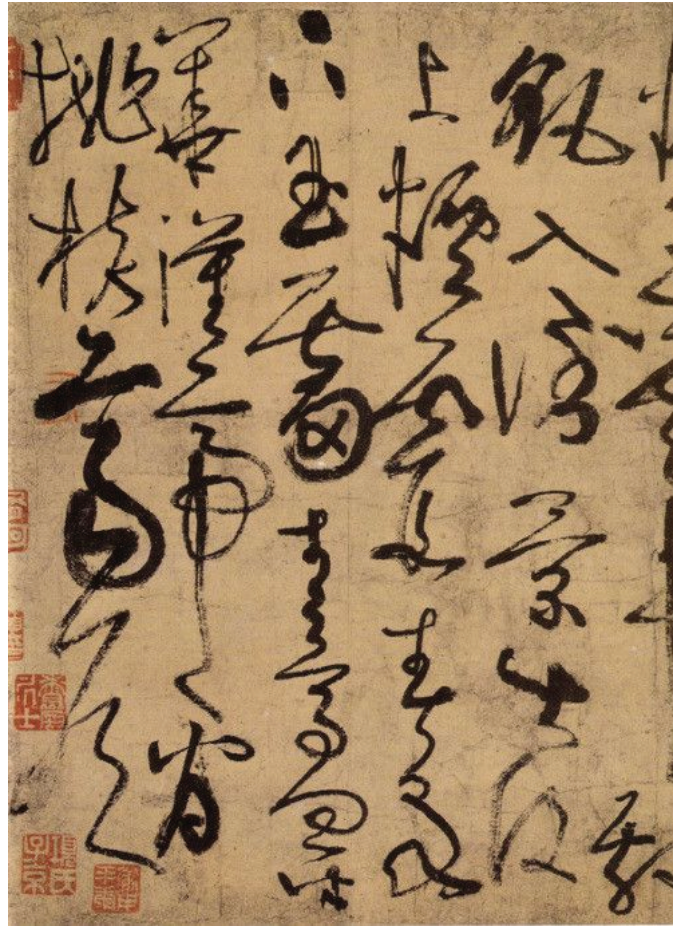 飄
颻入倒景出沒
上煙霞春泉
下玉霤青鳥向金
華漢帝看
桃核齊侯